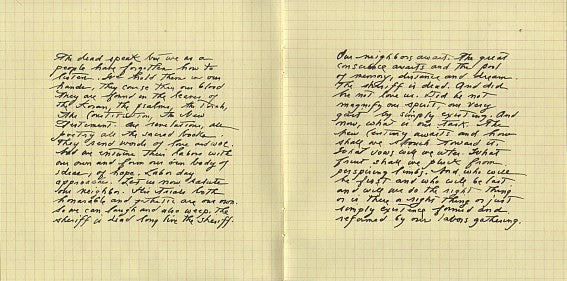 The dead speak but we as a
people have forgotten how to
listen. We hold them in our
hands, they course thru our blood
they are found in the leaves of
the Koran, the psalms, the Torah,
the Constitution, the New
Testament. Our revelations, all
poetry all the sacred books.
They send words of love and woe.
And we entwine their labor with
our own and form our own body of
ideas, of hope. Labor day
approaches. Let us now salute
our neighbor. His trials both
honorable and pathetic are our own.
So we can laugh and also weep. The
sheriff is dead long live the sheriff.
Our neighbors await. The great
conscience awaits and the pool
of memory, distance and dream.
The sheriff is dead. And did
he not love us. Did he not
magnify our spirit, our very
gait by simply existing. And
now, what is our task. The
new century awaits and how
shall we move toward it.
What vows will we utter. What
fruit shall we pluck from
perspiring limbs. And who will
be first and who will be last
and will we do the right thing
or is there a right thing or just
simply existence formed and
reformed by our labors gathering.